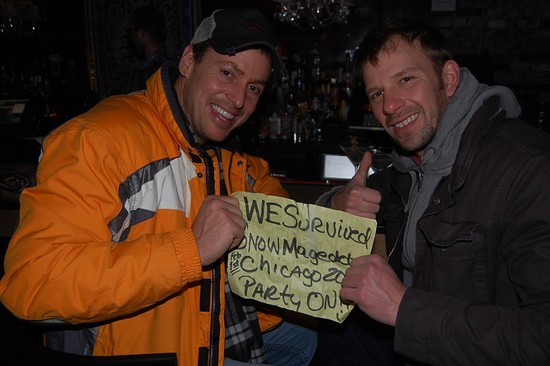 WE Survived
SNOWMagedd
Feb 1st Chicago 20
PARTY ON!!